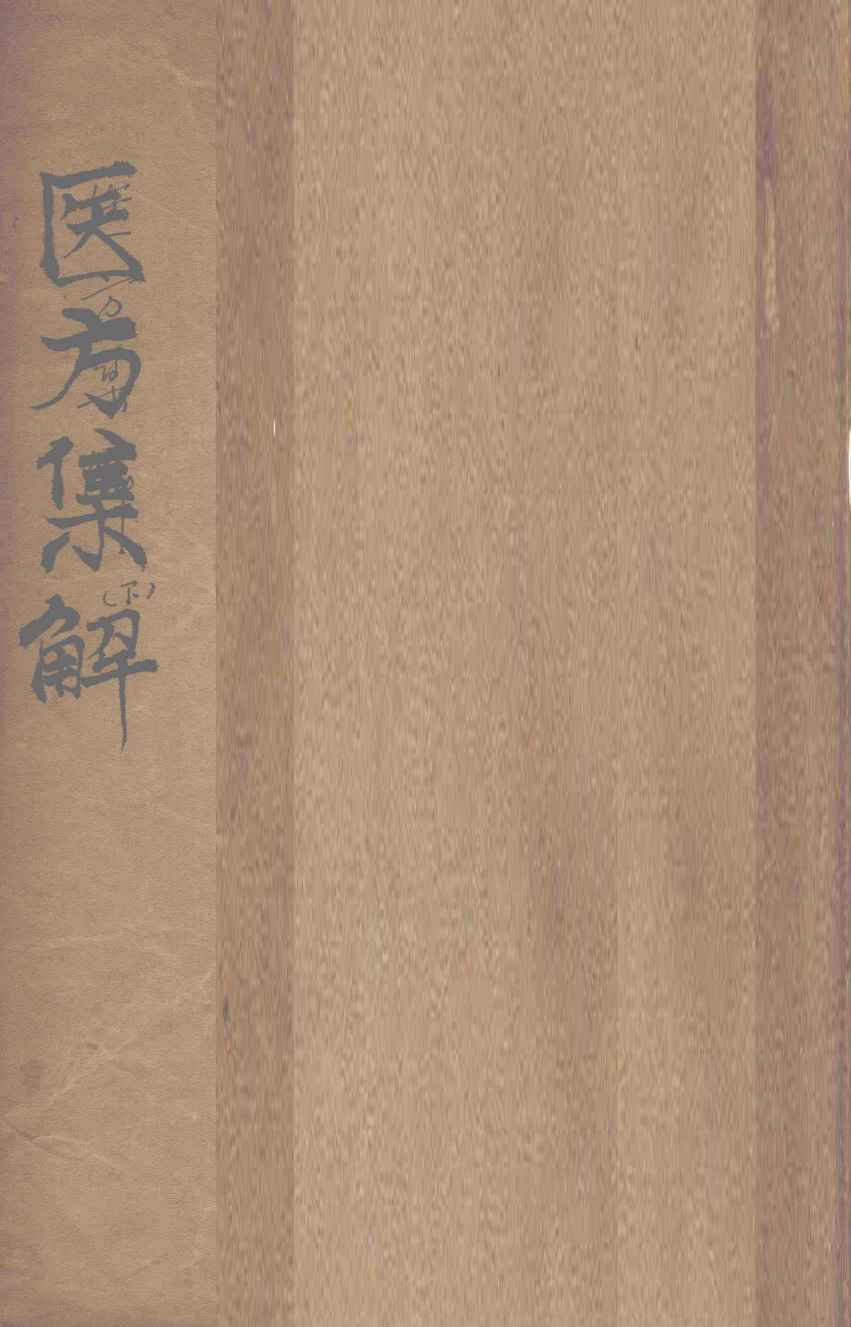 医方集解
(下)